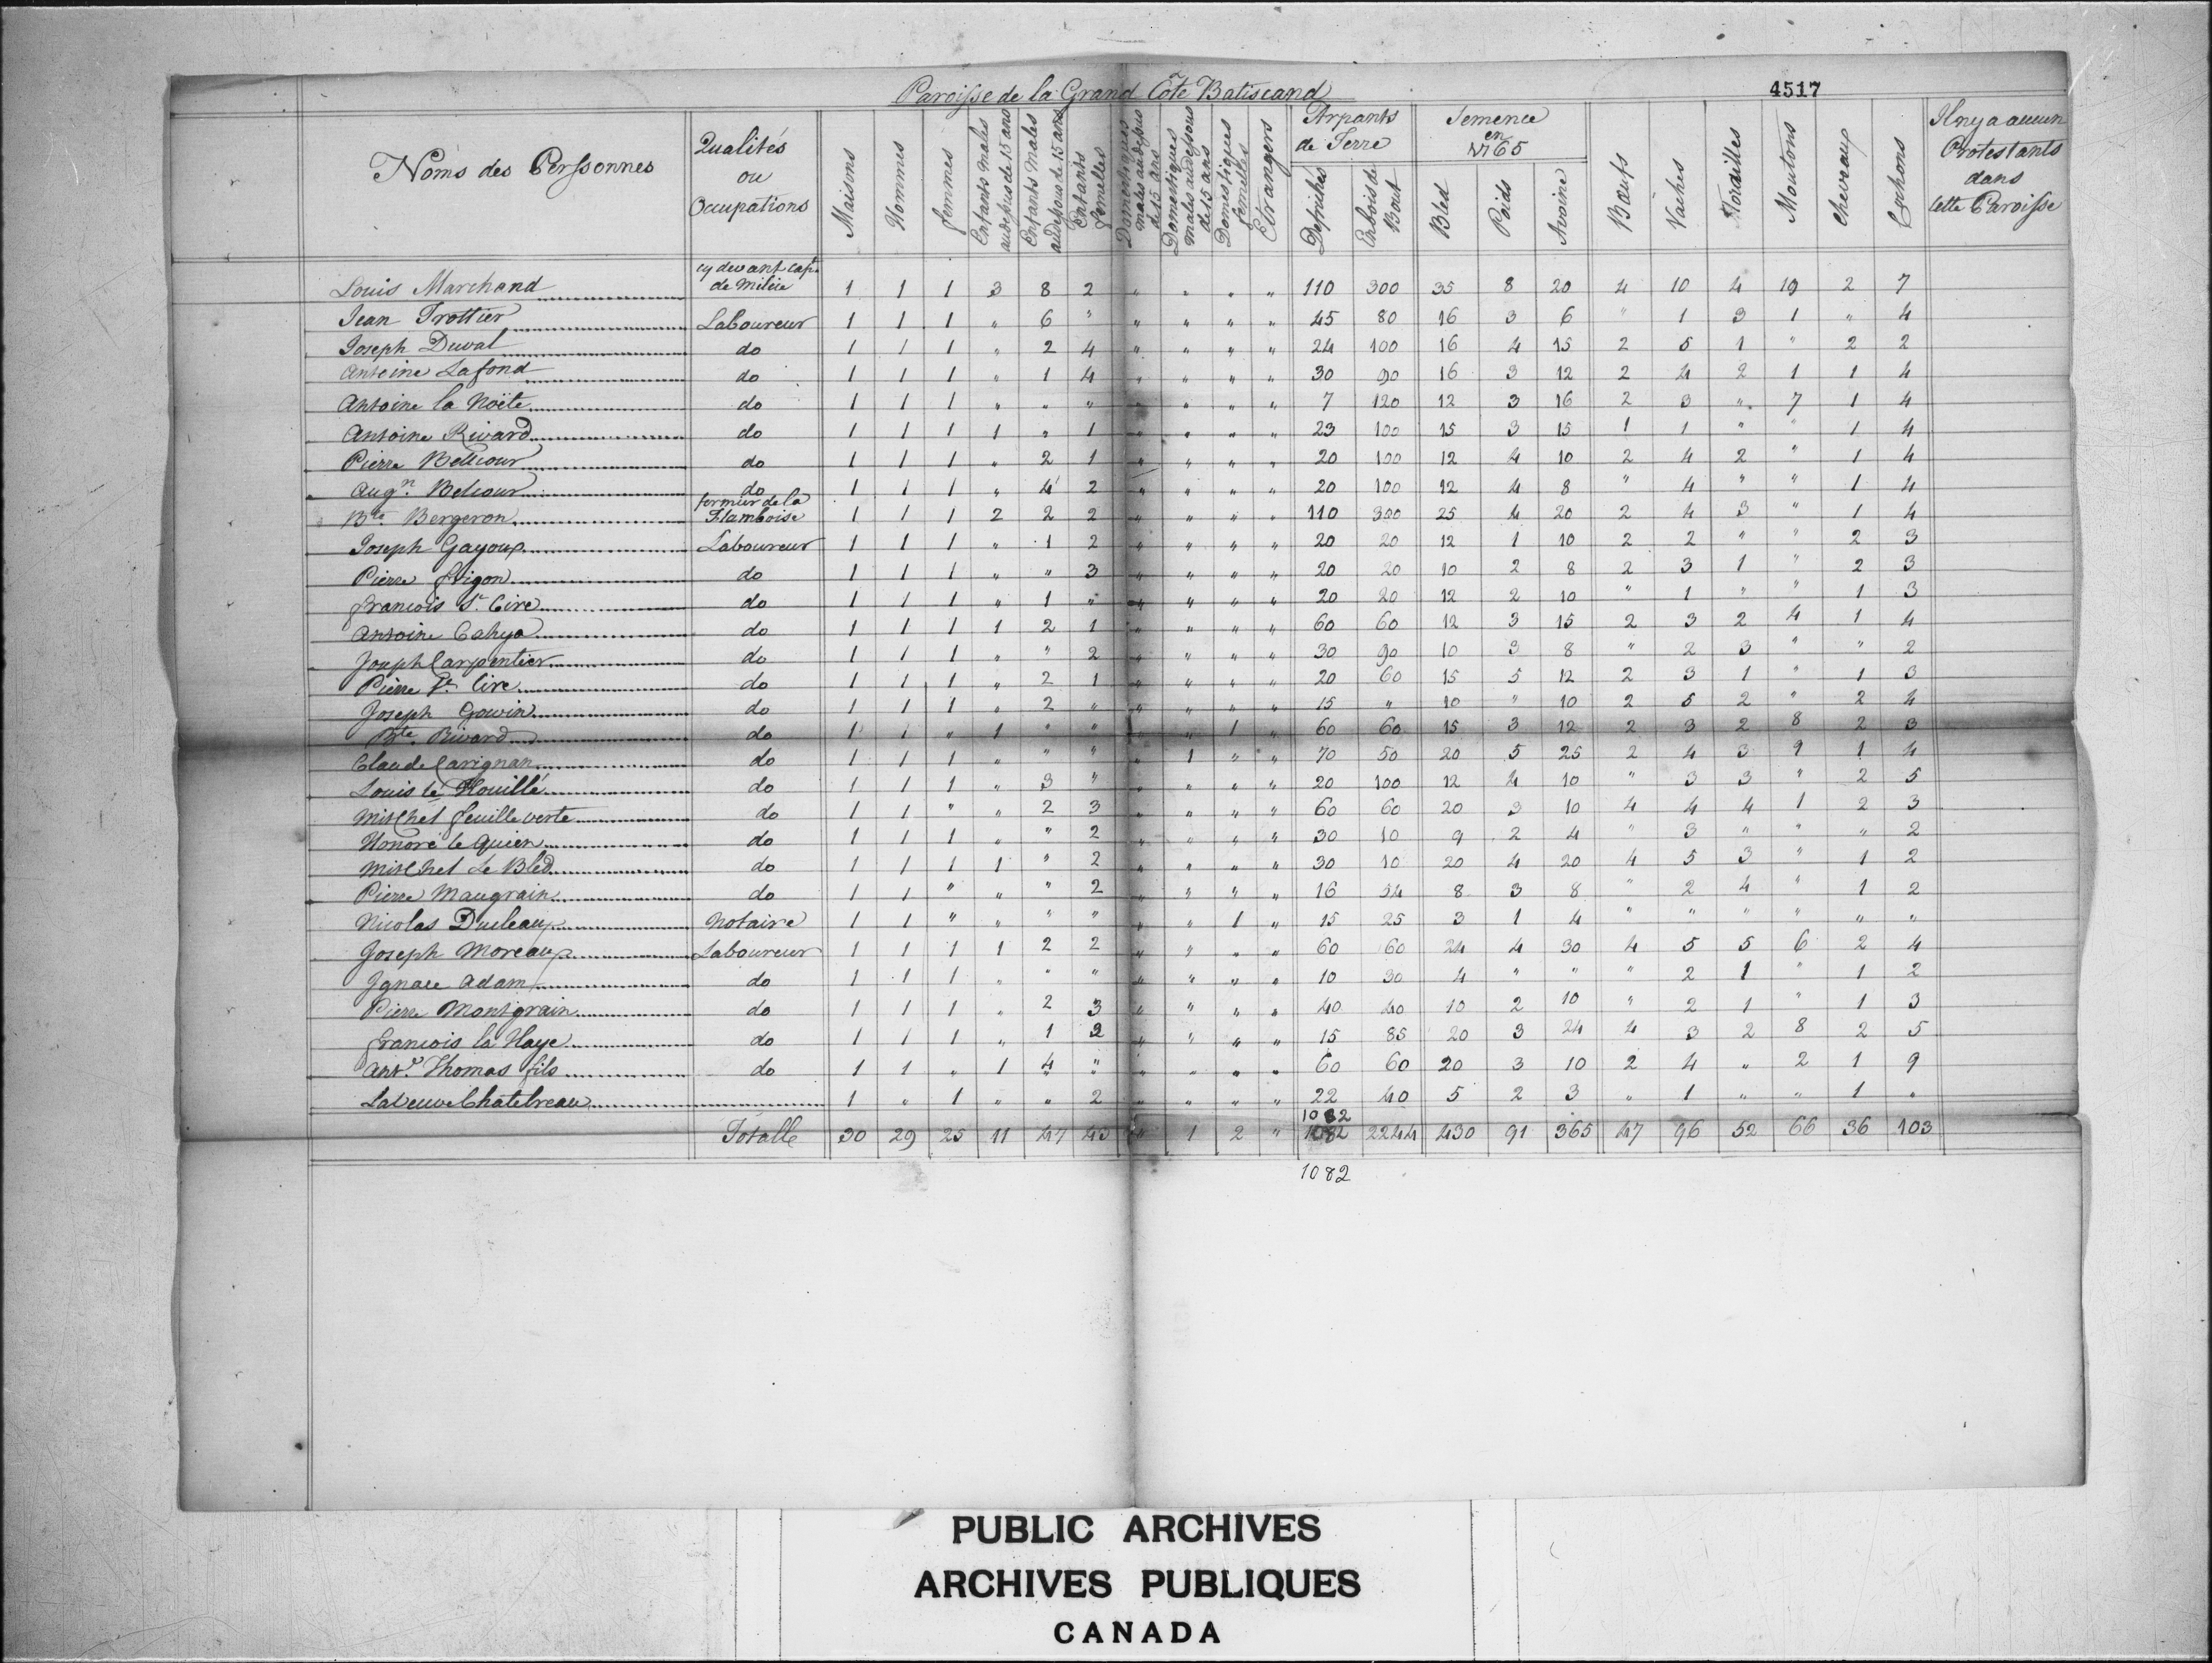 Paroisse de la Grand Côte Batiscand
4517
Noms des Perssonnes Qualités ou Occupations Maisons Hommes femmes Enfants Males audessus de 15 ans Enfants Males audessous de 15 ans Enfants femelles Domestiques males audessus de 15 ans Domestiques males audessous de 15 ans Domestiques femelles Etrangers Arpants de Terre Defrichés Enbois de Bout Semence en 1765 Bled Poids Avoine Bœufs Vaches Torailles Moutons chevaux Cochons Il ny a aucun Protestants dans Cette Paroisse
Louis Marchand cy devant cap. de Milice 1 1 1 3 8 2 " " " " 110 300 35 8 20 4 10 4 19 2 7
Jean Trottier Laboureur 1 1 1 " 6 " " " " " 45 80 16 3 6 " 1 3 1 " 4
Joseph Duval do 1 1 1 " 2 4 " " " " 24 100 16 4 15 2 5 1 " 2 2
Antoine Lafond do 1 1 1 " 1 4 " " " " 30 90 16 3 12 2 4 2 1 1 4
Antoine la Noëte do 1 1 1 " " " " " " " 7 120 12 3 16 2 3 " 7 1 4
Antoine Rivard do 1 1 1 1 " 1 " " " " 23 100 15 3 15 1 1 " " 1 4
Pierre Bellcour do 1 1 1 " 2 1 " " " " 20 100 12 4 10 2 4 2 " 1 4
Augn Belcour do 1 1 1 " 4 2 " " " " 20 100 12 4 8 " 4 " " 1 4
Bte Bergeron fermier de la Flamboise 1 1 1 2 2 2 " " " " 110 300 25 4 20 2 4 3 " 1 4
Joseph Gayoux Laboureur 1 1 1 " 1 2 " " " " 20 20 12 1 10 2 2 " " 2 3
Pierre frigon do 1 1 1 " " 3 " " " " 20 20 10 2 8 2 3 1 " 2 3
francois St Cire do 1 1 1 " 1 " " " " " 20 20 12 2 10 " 1 " " 1 3
Antoine Cahya do 1 1 1 1 2 1 " " " " 60 60 12 3 15 2 3 2 4 1 4
Joseph Carpentier do 1 1 1 " " 2 " " " " 30 90 10 3 8 " 2 3 " " 2
Pierre St Cire do 1 1 1 " 2 1 " " " " 20 60 15 5 12 2 3 1 " 1 3
Joseph Gowin do 1 1 1 " 2 " " " " " 15 " 10 " 10 2 5 2 " 2 4
Bte Rivard do 1 1 " 1 " " " " 1 " 60 60 15 3 12 2 3 2 8 2 3
Claude Carignan do 1 1 1 " " " " 1 " " 70 50 20 5 25 2 4 3 9 1 4
Louis le Houillé do 1 1 1 " 3 " " " " " 20 100 12 4 10 " 3 3 " 2 5
Mitchel feuille verte do 1 1 " " 2 3 " " " " 60 60 20 3 10 4 4 4 1 2 3
Honoré le Quien do 1 1 1 " " 2 " " " " 30 10 9 2 4 " 3 " " " 2
Mitchel Le Bled do 1 1 1 1 " 2 " " " " 30 10 20 4 20 4 5 3 " 1 2
Pierre Maugrain do 1 1 " " " 2 " " " " 16 34 8 3 8 " 2 4 " 1 2
Nicolas Ducleaux Notaire 1 1 " " " " " " 1 " 15 25 3 1 4 " " " " " "
Joseph Moreaux Laboureur 1 1 1 1 2 2 " " " " 60 60 24 4 30 4 5 5 6 2 4
Ignace Adam do 1 1 1 " " " " " " " 10 30 4 " " " 2 1 " 1 2
Pierre Montgrain do 1 1 1 " 2 3 " " " " 40 40 10 2 10 " 2 1 " 1 3
francois la Haye do 1 1 1 " 1 2 " " " " 15 85 20 3 24 4 3 2 8 2 5
Ante Thomas fils do 1 1 " 1 4 " " " " " 60 60 20 3 10 2 4 " 2 1 9
La Veuve Chatelreau 1 " 1 " " 2 " " " " 22 40 5 2 3 " 1 " " 1 "
1082
Totalle 30 29 25 11 47 43 " 1 2 " 1082 2244 430 91 365 47 96 52 66 36 103
1082
PUBLIC ARCHIVES
ARCHIVES PUBLIQUES
CANADA